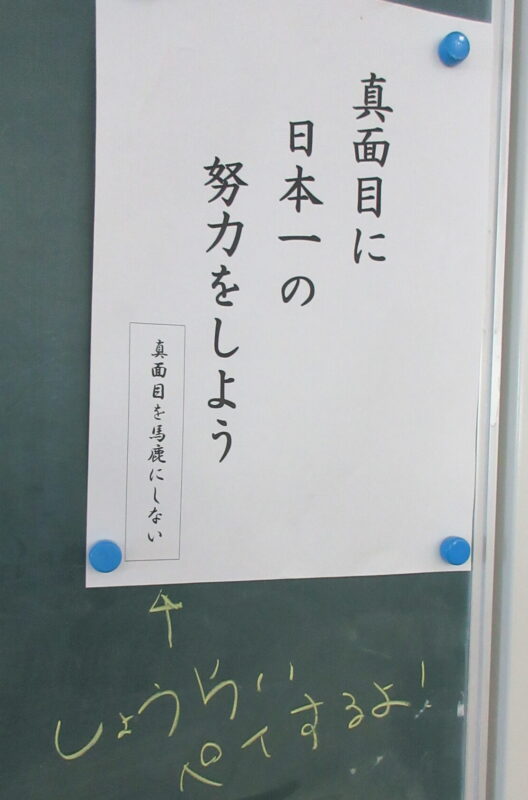 真面目に
日本一の
努力をしよう
真面目を馬鹿にしない
しょうらい
ペイするよ!